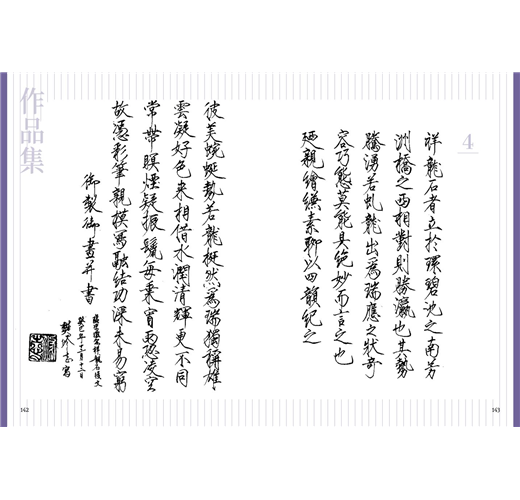 4
祥龍石者立於環碧池之南芳
洲橋之西相對則勝瀛也其勢
騰湧若虬龍出為瑞應之狀奇
容巧態莫能具絕妙而言之也
廼親繪縑素聊以四韻紀之
作品集
彼美蜿蜒勢若龍挺然為瑞獨稱雄
雲凝好色來相借水潤清輝更不同
常帶暝煙疑振鬣每乘宵雨恐凌空
故憑彩筆親模寫融結功深未易窮
御製御畫并書
142
143